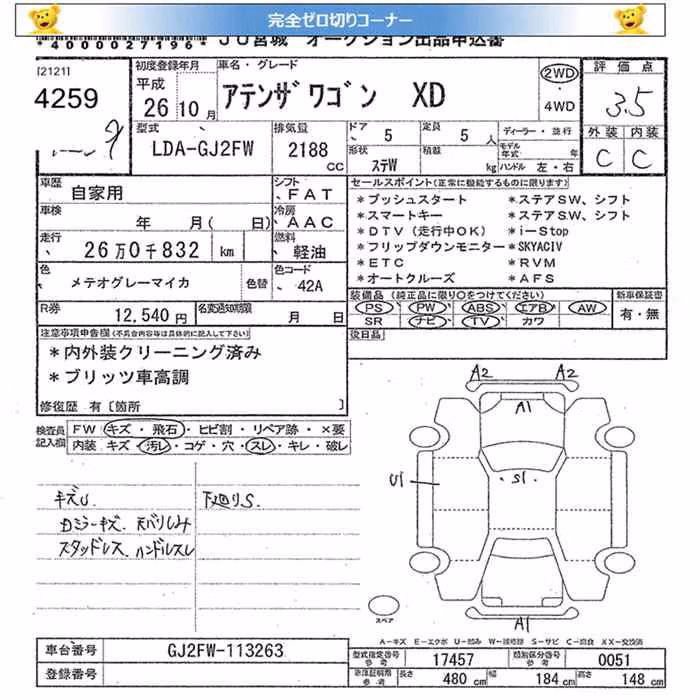 完全ゼロ切りコーナー
*4000027196* JU宮城 オークション出品申込書
[2121]
4259
初度登録年月
平成
26 10 月
車名・グレード
アテンザワゴン XD
2WD
・
4WD
評価点
3.5
外装 内装
C C
型式
LDA-GJ2FW
排気量
2188 CC
ドア 5
定員 5 人
形状 ステW
積載 kg
ディーラー・並行
モデル年式 年
ハンドル 左・右
車歴 自家用
シフト FAT
車検 年 月( 日)
冷房 AAC
走行 26万0千832 km
燃料 軽油
色 メテオグレーマイカ
色替
色コード 42A
R券 12,540 円
名変通知期限 月 日
セールスポイント(正常に機能するものに限ります)
*プッシュスタート *ステアSW、シフト
*スマートキー *ステアSW、シフト
*DTV(走行中OK) *i-Stop
*フリップダウンモニター *SKYACIV
*ETC *RVM
*オートクルーズ *AFS
装備品(純正品に限り○をつけてください)
PS PW ABS エアB AW
SR ナビ TV カワ
新車保証書
有・無
後日品
注意事項申告欄(不具合内容等は具体的に記入して下さい)
*内外装クリーニング済み
*ブリッツ車高調
修復歴 有〔箇所 〕
検査員記入欄
FW キズ・飛石・ヒビ割・リペア跡・×要
内装 キズ・汚レ・コゲ・穴・スレ・キレ・破レ
キズU 下廻りS.
カミラーキズ、天バリしみ
スタッドレス、ハンドルスレ
A2 A2
A1
U1
S1
スペア
A1
A-キズ E-エクボ U-凹み W-補修跡 S-サビ C-腐食 XX-交換済
車台番号 GJ2FW-113263
登録番号
型式指定番号 参考 17457
類別区分番号 参考 0051
車庫証明用 参考 長さ 480 cm 幅 184 cm 高さ 148 cm